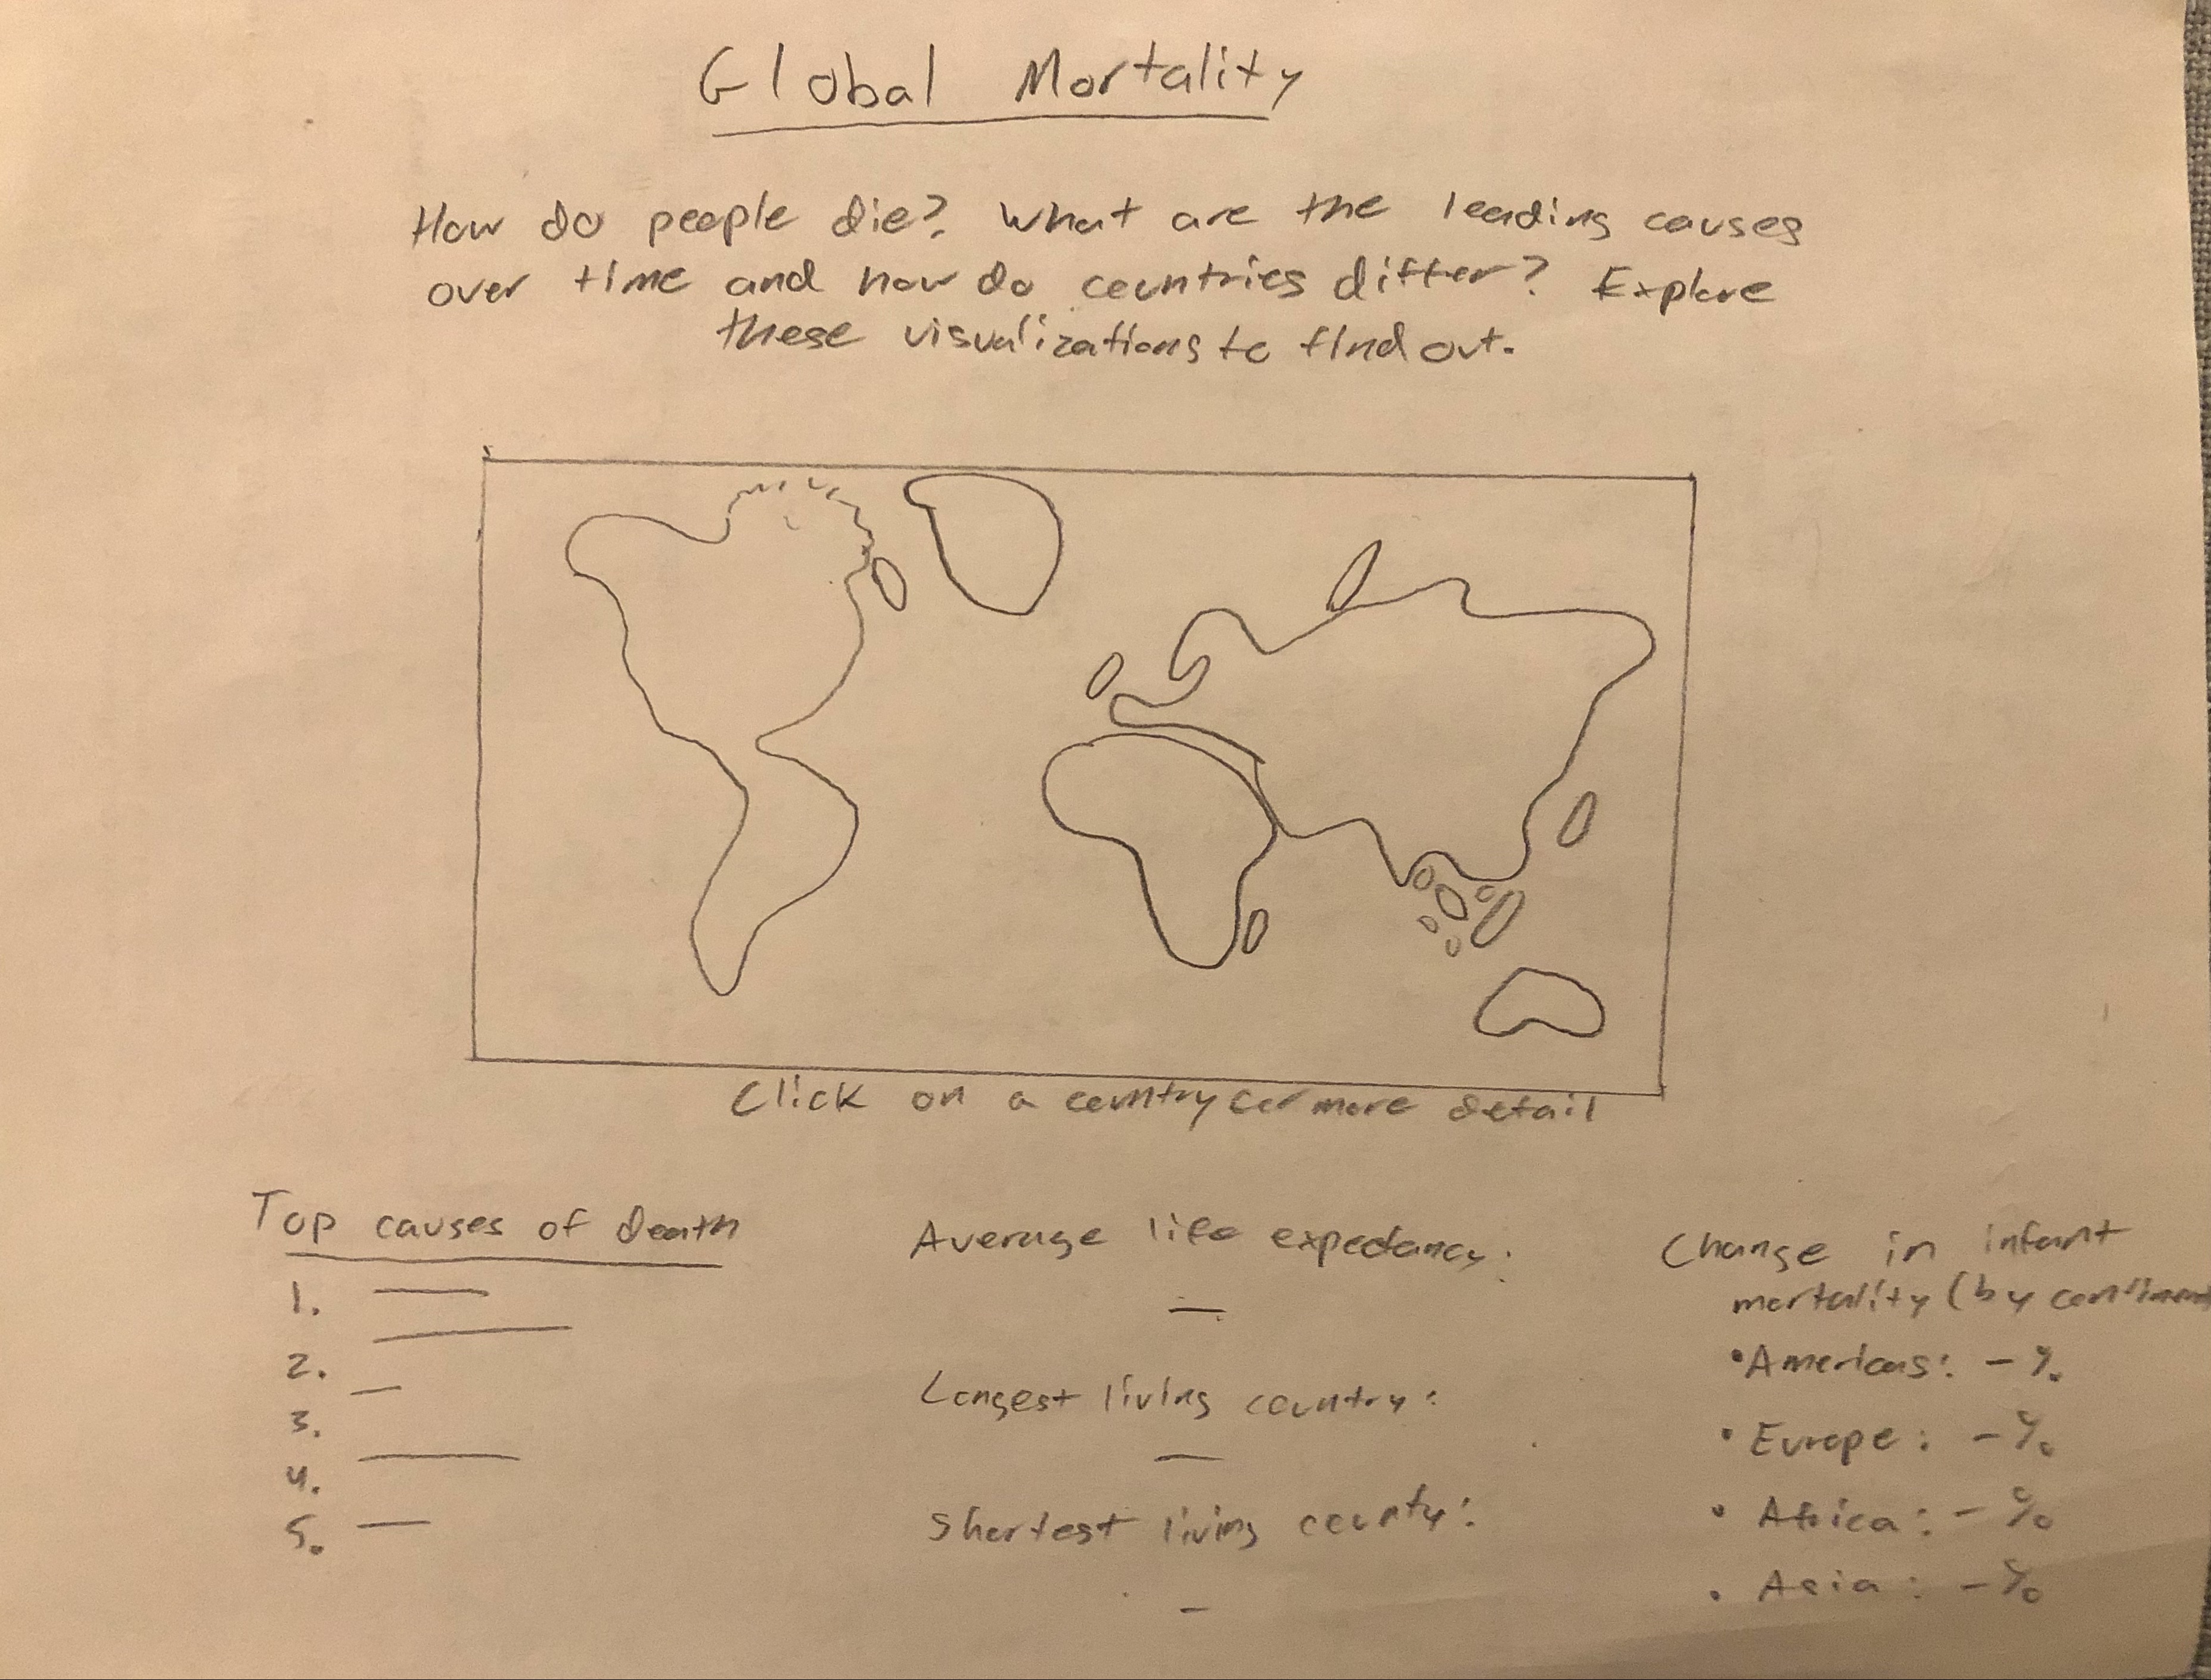 Global Mortality
How do people die? What are the leading causes
over time and how do countries differ? Explore
these visualizations to find out.
Click on a country for more detail
Top causes of death
1. —
2. —
3. —
4. —
5. —
Average life expectancy:
—
Longest living country:
—
Shortest living county:
—
Change in infant
mortality (by continent
• Americas: - %
• Europe: - %
• Africa: - %
• Asia: - %